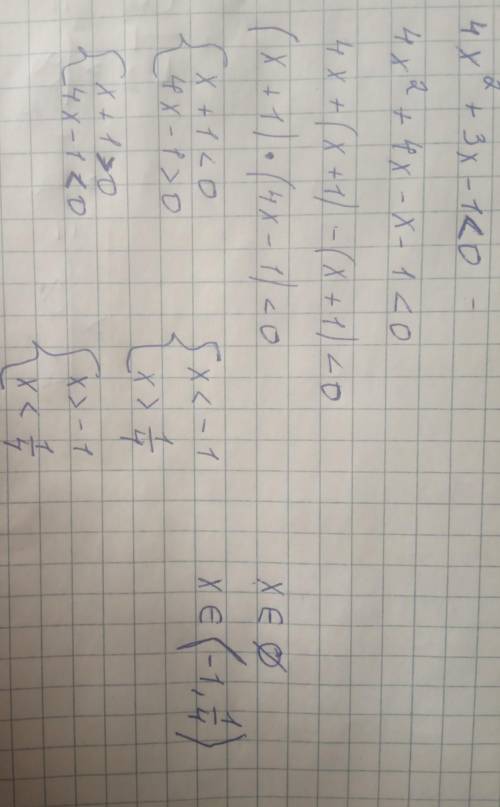 4x² + 3x - 1 < 0 -
4x² + 4x - x - 1 < 0
4x + (x + 1) - (x + 1) < 0
(x + 1) • (4x - 1) < 0
{ x + 1 < 0
{ 4x - 1 > 0
{ x + 1 > 0
{ 4x - 1 < 0
{ x < - 1
{ x > 1/4
{ x > - 1
{ x < 1/4
x ∈ ∅
x ∈ (-1, 1/4)